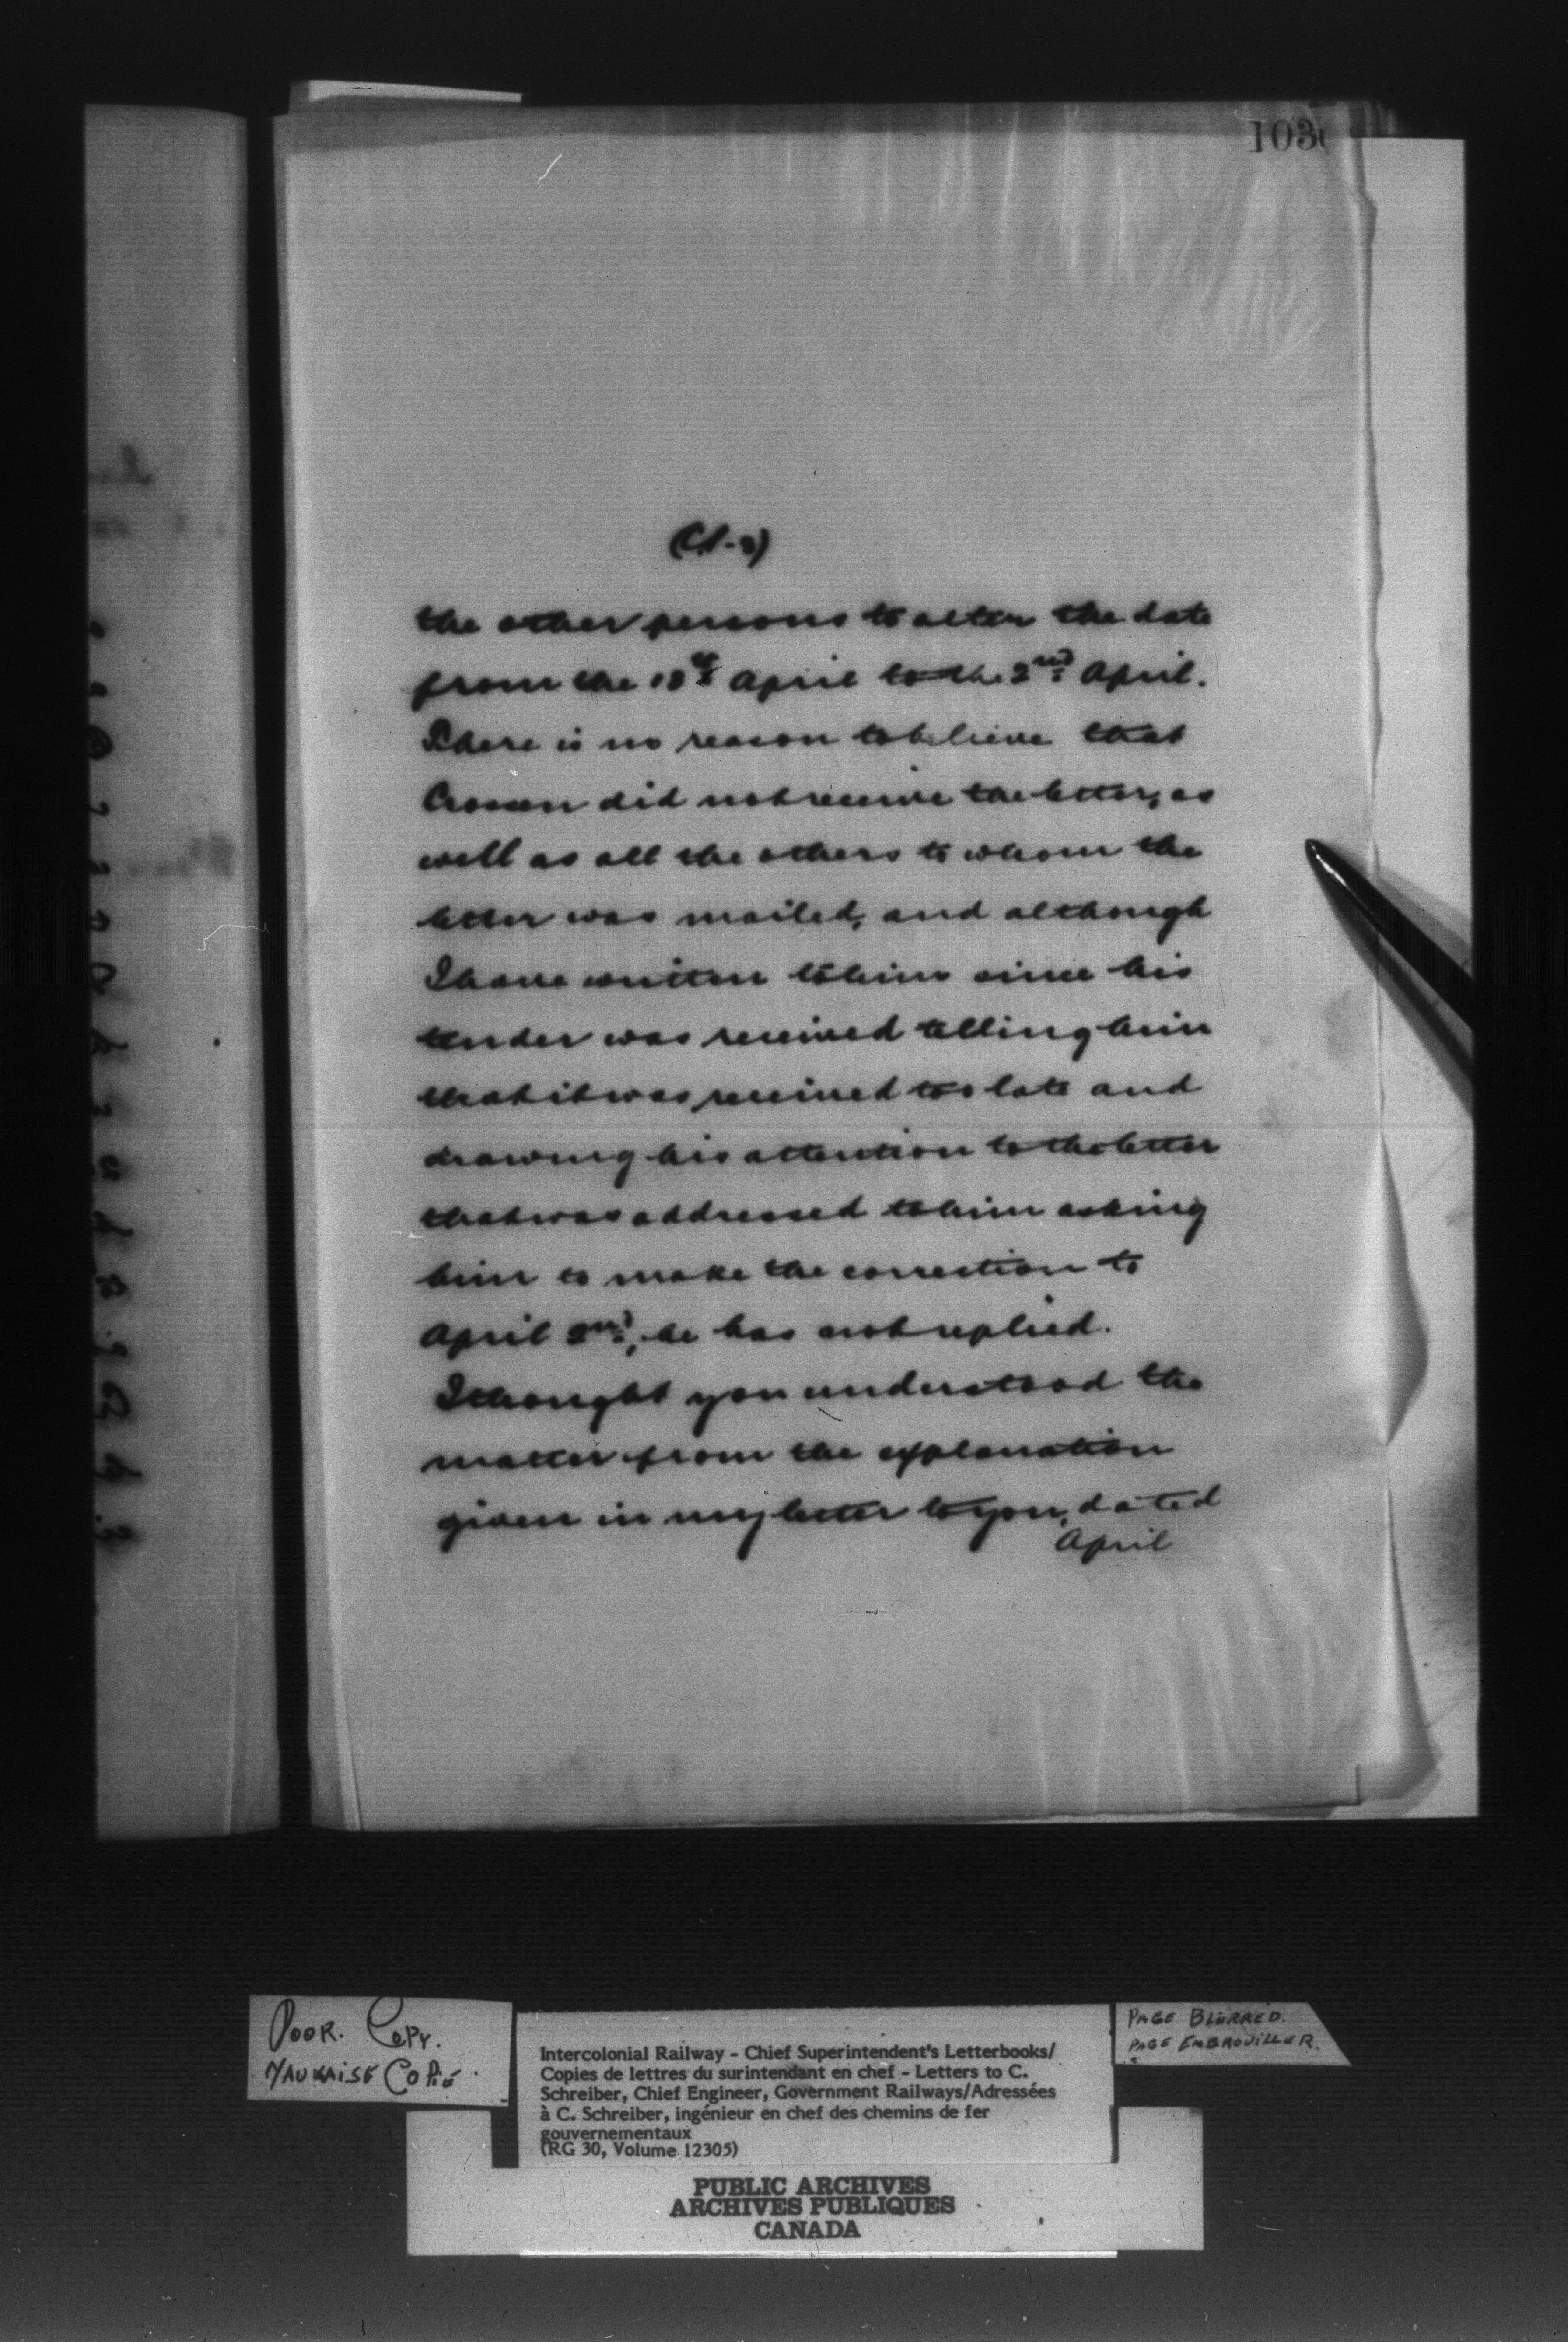 103
the other persons to alter the date
from the 18th April to the 2nd April.
There is no reason to believe that
Crossen did not receive the letter, as
well as all the others to whom the
letter was mailed, and although
I have written to him since his
tender was received telling him
that it was received too late and
drawing his attention to the letter
that was addressed to him asking
him to make the correction to
April 2nd, he has not replied.
I thought you understood the
matter from the explanation
given in my letter to you, dated
April
POOR. COPY.
MAUVAISE COPIE
Intercolonial Railway - Chief Superintendent's Letterbooks/
Copies de lettres du surintendant en chef - Letters to C.
Schreiber, Chief Engineer, Government Railways/Adressées
à C. Schreiber, ingénieur en chef des chemins de fer
gouvernementaux
(RG 30, Volume 12305)
PAGE BLURRED.
PAGE EMBROUILLER.
PUBLIC ARCHIVES
ARCHIVES PUBLIQUES
CANADA